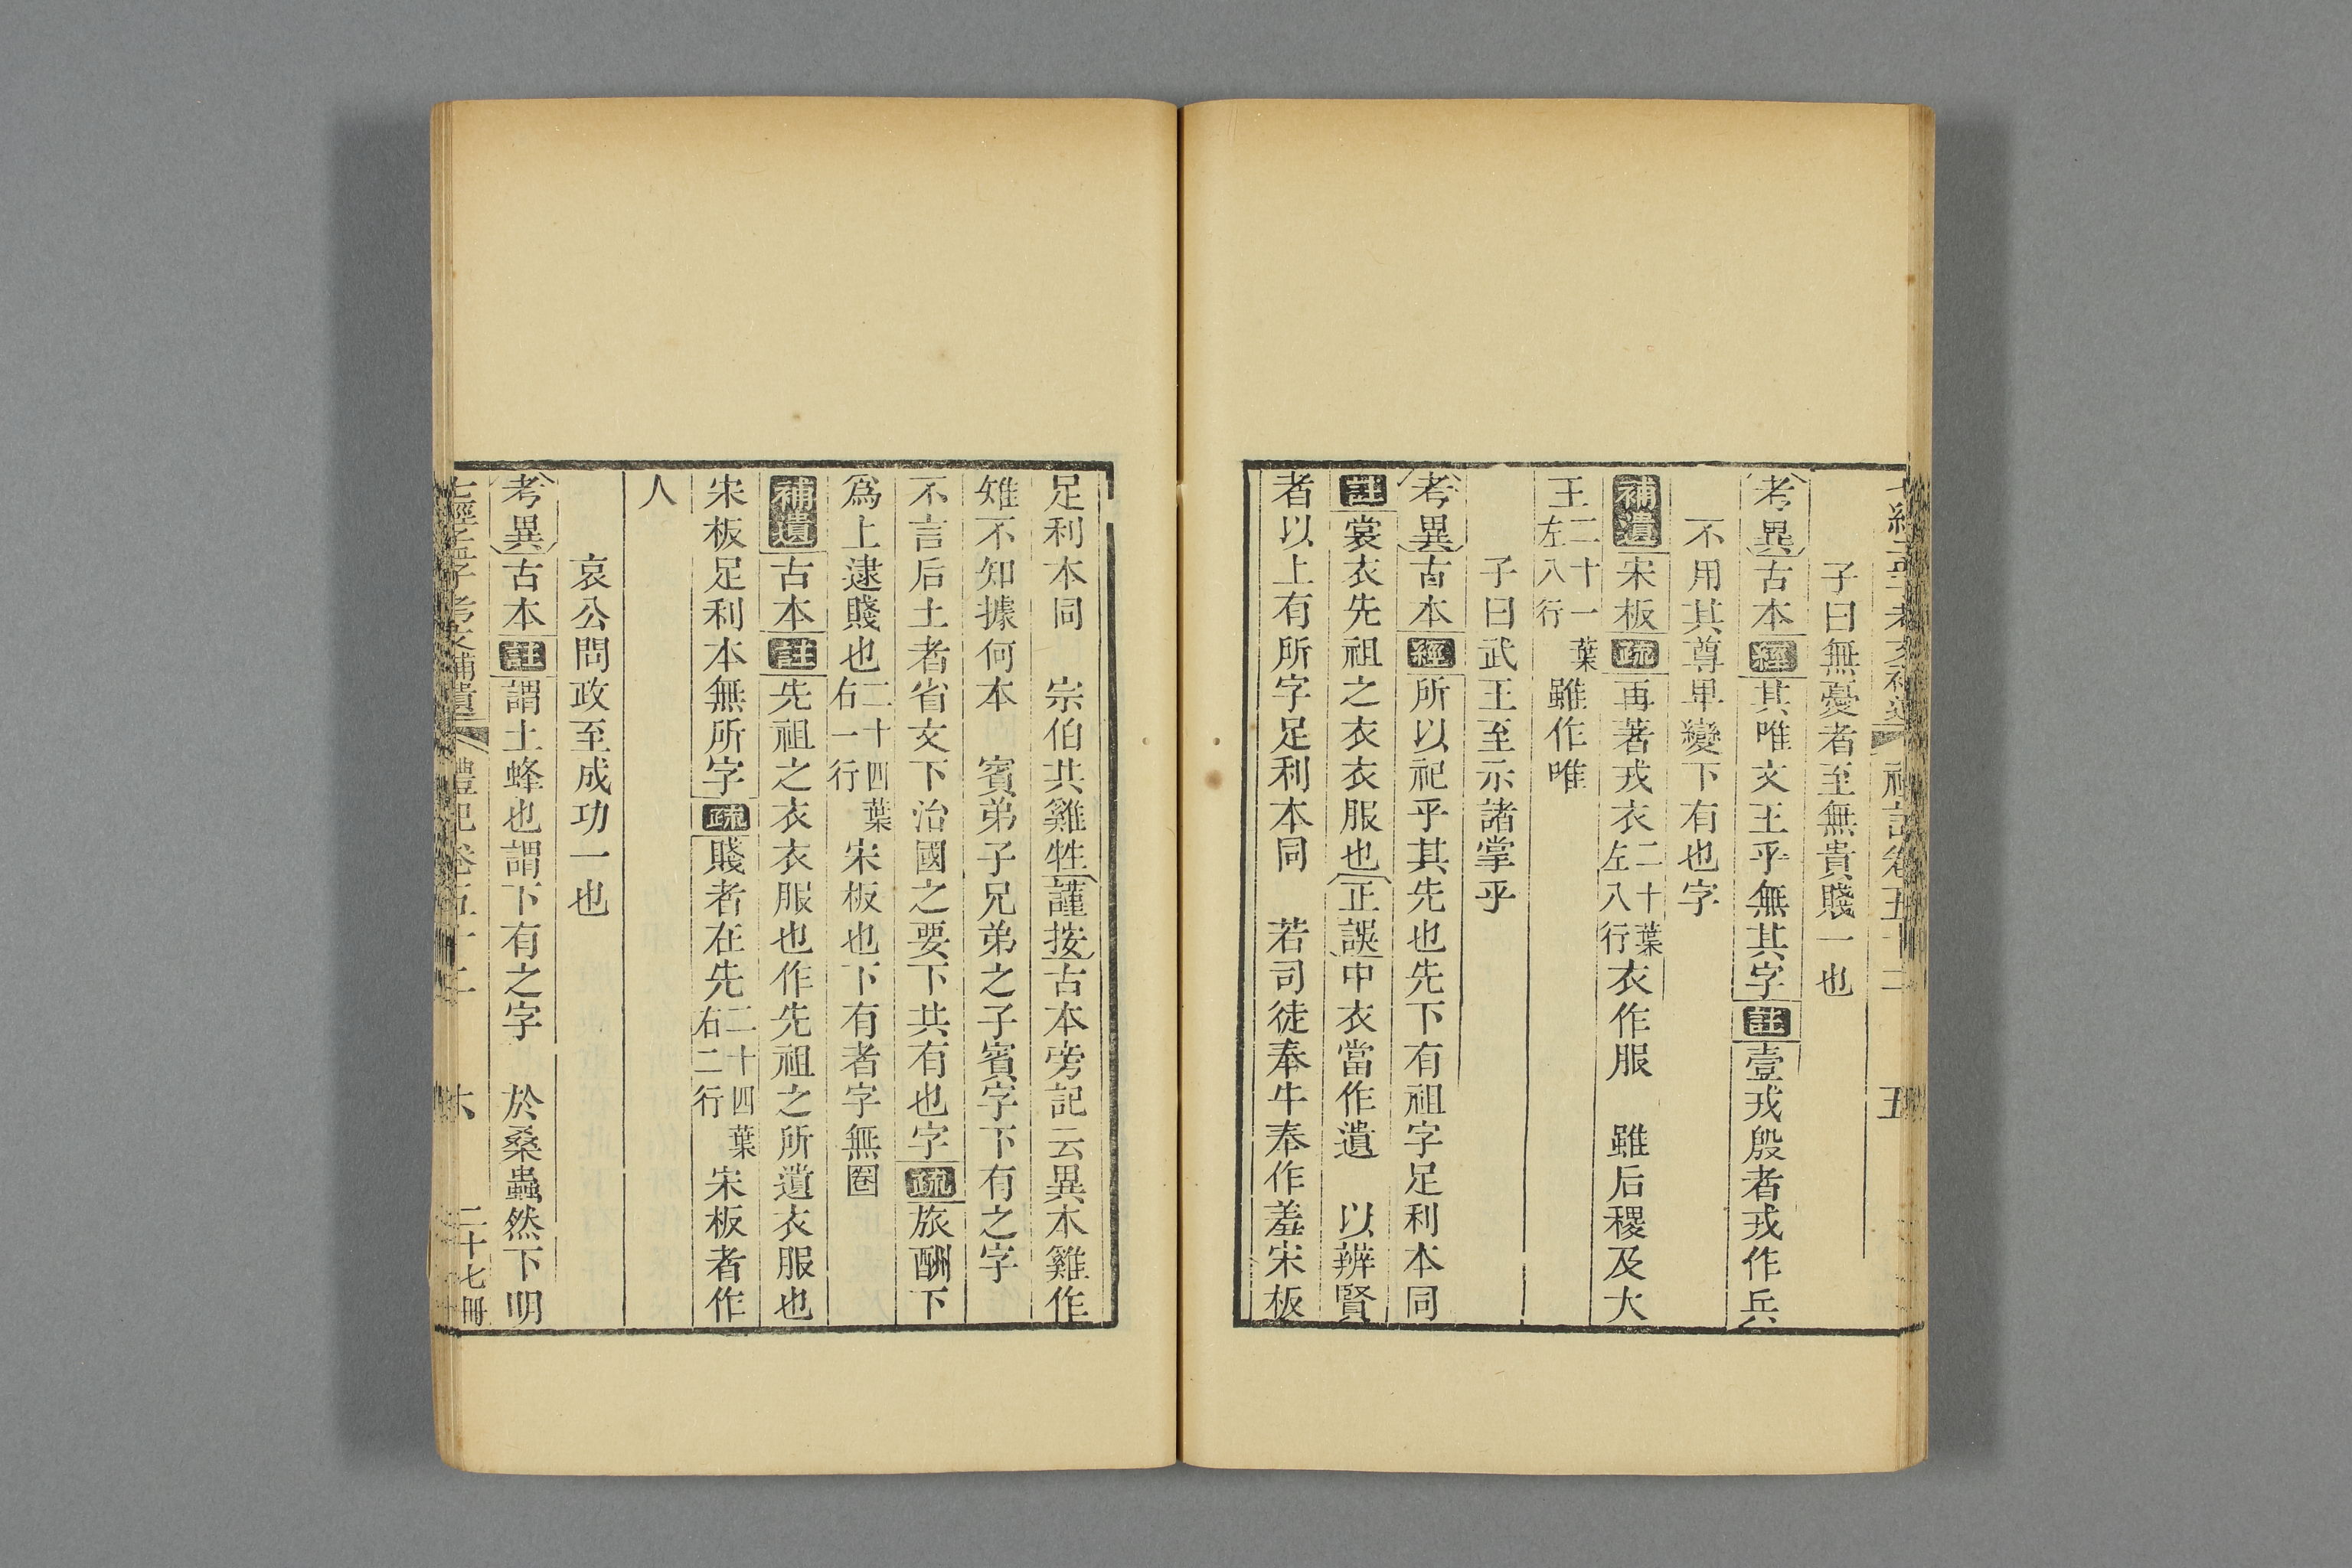 七經孟子考文補遺 禮記卷五十二 五
子曰無憂者至無貴賤一也
考異古本經其唯文王乎無其字註壹戎殷者戎作兵
不用其尊卑變下有也字
補遺宋板疏再著戎衣二十葉左八行衣作服 雖后稷及大
王二十一葉左八行雖作唯
子曰武王至示諸掌乎
考異古本經所以祀乎其先也先下有祖字足利本同
註裳衣先祖之衣衣服也正誤中衣當作遺 以辨賢
者以上有所字足利本同 若司徒奉牛奉作羞宋板
足利本同 宗伯共雞牲謹按古本旁記云異本雞作
雉不知據何本 賓弟子兄弟之子賓字下有之字
不言后土者省文下治國之要下共有也字疏旅酬下
爲上逮賤也二十四葉右一行宋板也下有者字無圈
補遺古本註先祖之衣衣服也作先祖之所遺衣服也
宋板足利本無所字疏賤者在先二十四葉右二行宋板者作
人
哀公問政至成功一也
考異古本註謂土蜂也謂下有之字 於桑蟲然下明
七經孟子考文補遺 禮記卷五十二 六 二十七冊